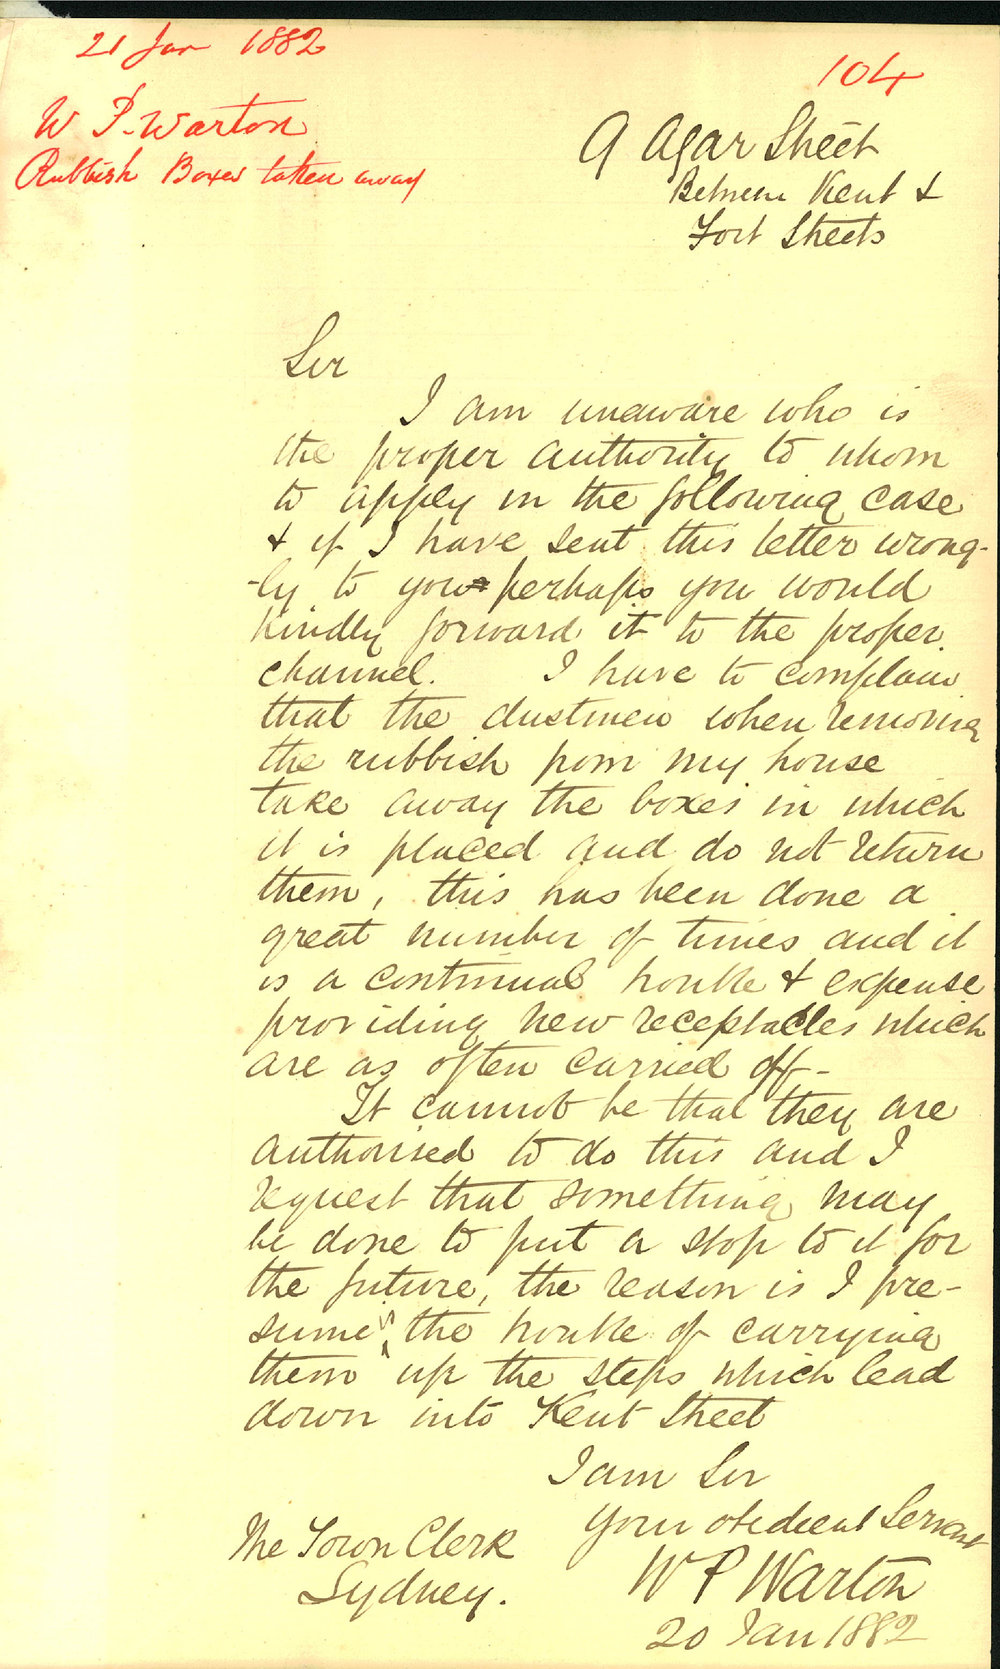 21 Jan 1882
104
W P. Warton
Rubbish Boxes taken away
9 Agar Street
Between Kent &
Fort Streets
Sir
I am unaware who is
the proper authority to whom
to apply in the following case
& if I have sent this letter wrong-
-ly to you perhaps you would
kindly forward it to the proper
channel. I have to complain
that the dustmen when removing
the rubbish from my house
take away the boxes in which
it is placed and do not return
them, this has been done a
great number of times and it
is a continual trouble & expense
providing new receptacles which
are as often carried off -
It cannot be that they are
authorised to do this and I
request that something may
be done to put a stop to it for
the future, the reason is I pre-
sume, the trouble of carrying
them up the steps which lead
down into Kent Street
I am Sir
Your obedient Servant
W P Warton
20 Jan 1882
The Town Clerk
Sydney.